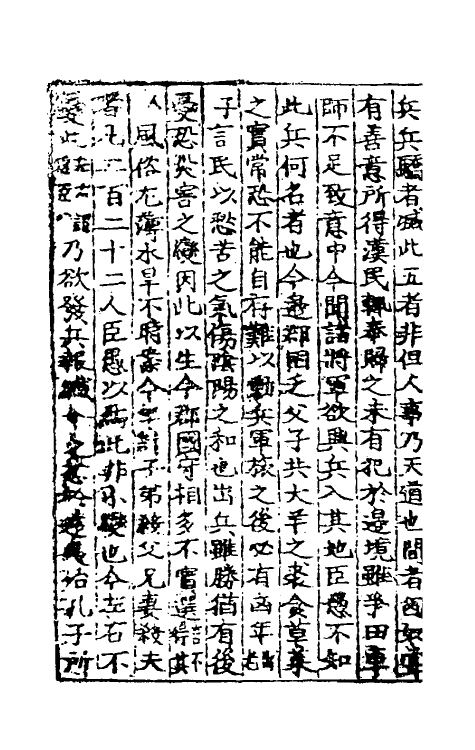 兵兵驕者滅此五者非但人事乃天道也間者匈奴嘗
有善意所得漢民輒奉歸之未有犯於邊境雖爭田車
師不足致意中今聞諸將軍欲興兵入其地臣愚不知
此兵何名者也今邊郡困乏父子共犬羊之裘食草萊
之實常恐不能自存難以動兵軍旅之後必有凶年
子言民以愁苦之氣傷陰陽之和也出兵雖勝猶有後
憂恐災害之變因此以生今郡國守相多不實選
風俗尤薄水旱不時案今年計子弟殺父兄妻殺夫
者凡二百二十二人臣愚以為此非小變也今左右不
憂此乃欲發兵報孔子所